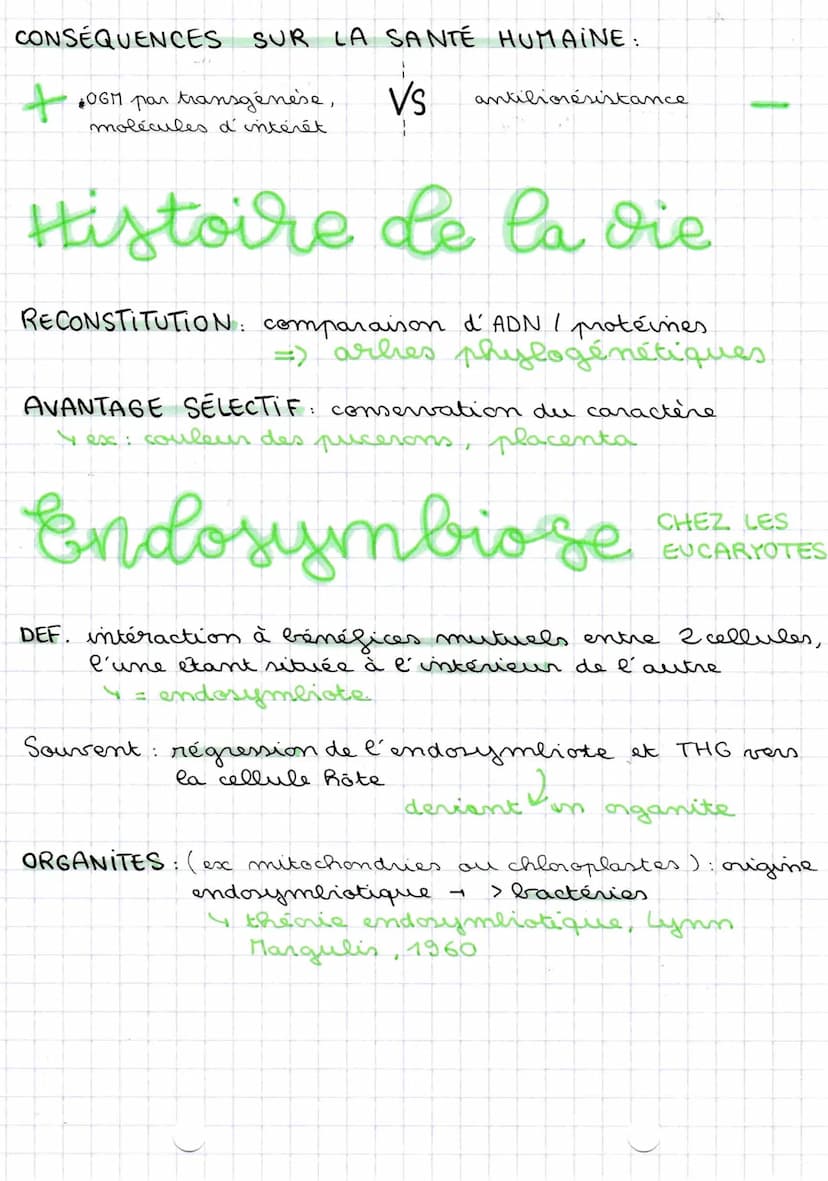 CONSÉQUENCES SUR LA SANTÉ HUMAINE :
+ .OGM par transgénèse, VS antibiorésistance -
molécules d'intérêt
Histoire de la vie
RECONSTITUTION : comparaison d'ADN / protéines
=> arbres phylogénétiques
AVANTAGE SÉLECTIF : conservation du caractère
↳ ex : couleur des pucerons, placenta
Endosymbiose CHEZ LES
EUCARYOTES
DEF. intéraction à bénéfices mutuels entre 2 cellules,
l'une étant située à l'intérieur de l'autre
↳ = endosymbiote
Souvent : régression de l'endosymbiote et THG vers
la cellule hôte
devient un organite
ORGANITES : (ex mitochondries ou chloroplastes) : origine
endosymbiotique → > bactéries
↳ théorie endosymbiotique, Lynn
Margulis, 1960